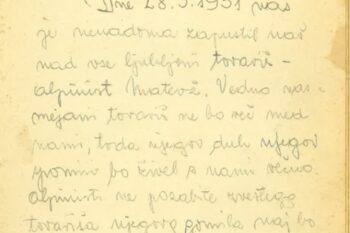 (Dne 28.5.1951 nas
je nenadoma zapustil naš
nad vse ljubljeni tovariš -
alpinist Matevž. Vedno nas-
mejani tovariš ne bo več med
nami, toda njegov duh njegov
spomin bo živel z nami večno.
Alpinisti ne pozabite zvestega
tovariša njegova gomila naj bo